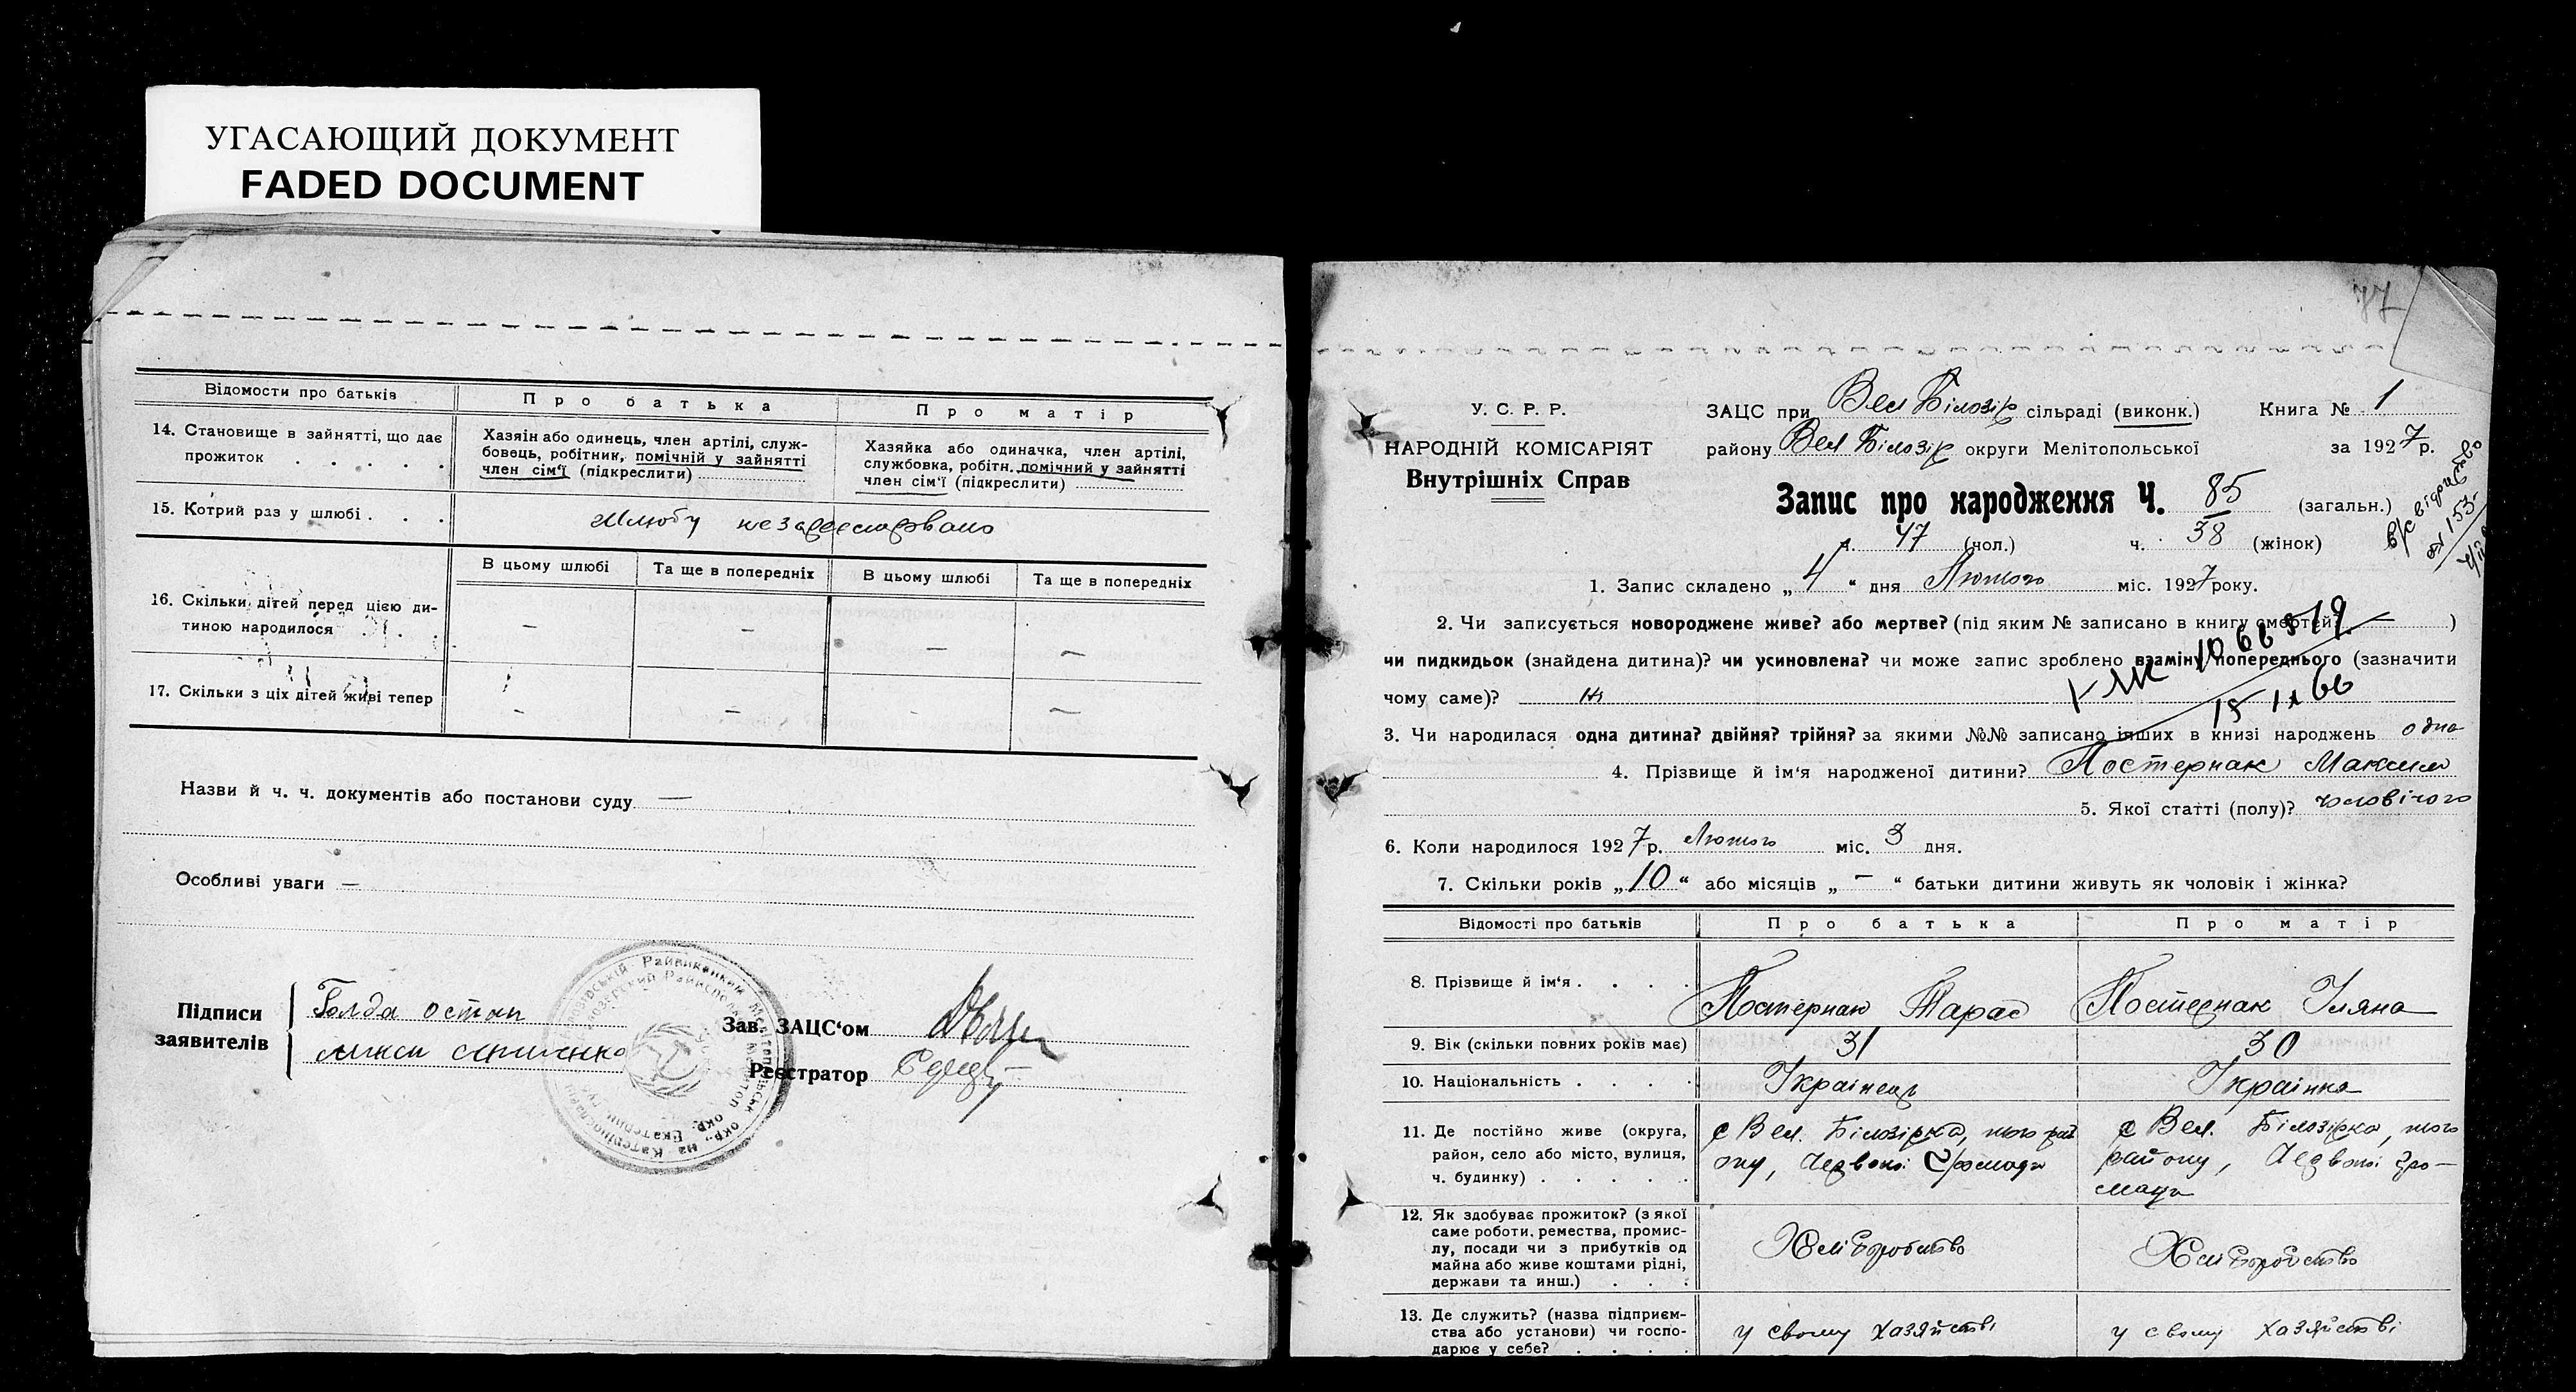 УГАСАЮЩИЙ ДОКУМЕНТ
FADED DOCUMENT
Відомости про батьків
Про батька
Про матір
14. Становище в зайнятті, що дає
прожиток . . . . .
Хазяїн або одинець, член артілі, служ-
бовець, робітник, помічній у зайнятті
член сім'ї (підкреслити)
Хазяйка або одиначка, член артілі,
службовка, робітн. помічний у зайнятті
член сім'ї (підкреслити)
15. Котрий раз у шлюбі . . .
Шлюбу незареєстровано
В цьому шлюбі
Та ще в попередніх
В цьому шлюбі
Та ще в попередніх
16. Скільки дітей перед цією ди-
тиною народилося . . .
— — — —
17. Скільки з ціх дітей живі тепер
— — — —
Назви й ч. ч. документів або постанови суду —
Особливі уваги —
Підписи
заявителів
Голда Остап
Зав. ЗАЦС'ом
Реєстратор
77
У. С. Р. Р.
НАРОДНІЙ КОМІСАРІЯТ
Внутрішніх Справ
ЗАЦС при Вел Білозір сільраді (виконк.) Книга № 1
району Вел Білозір округи Мелітопольської за 1927 р.
Запис про народження Ч. 85 (загальн.)
ч. 47 (чол.) ч. 38 (жінок)
1. Запис складено „ 4 “ дня Лютого міс. 1927 року.
2. Чи записується новороджене живе? або мертве? (під яким № записано в книгу смертей? — )
чи пидкидьок (знайдена дитина)? чи усиновлена? чи може запис зроблено взаміну попереднього (зазначити
чому саме)? ні
3. Чи народилася одна дитина? двійня? трійня? за якими №№ записано інших в книзі народжень одна
4. Прізвище й ім'я народженої дитини? Постернак Максим
5. Якої статті (полу)? чоловічого
6. Коли народилося 1927 р. Лютого міс. 3 дня.
7. Скільки років „ 10 “ або місяців „ — “ батьки дитини живуть як чоловік і жінка?
Відомості про батьків
Про батька
Про матір
8. Прізвище й ім'я . . . .
Постернак Тарас
Постернак Уляна
9. Вік (скільки повних років має)
31
30
10. Національність . . . .
Українець
Українка
11. Де постійно живе (округа,
район, село або місто, вулиця,
ч. будинку) . . . . .
с Вел. Білозірка, цього рай
ону, Червоної Громади
с Вел. Білозірка, цього
району, Червоної гро—
мади
12. Як здобуває прожиток? (з якої
саме роботи, ремества, промис-
лу, посади чи з прибутків од
майна або живе коштами рідні,
держави та инш.) . . .
Хліборобство
Хліборобство
13. Де служить? (назва підприєм-
ства або установи) чи госпо-
дарює у себе? . . . .
у свому хазяйстві
у свому хазяйстві